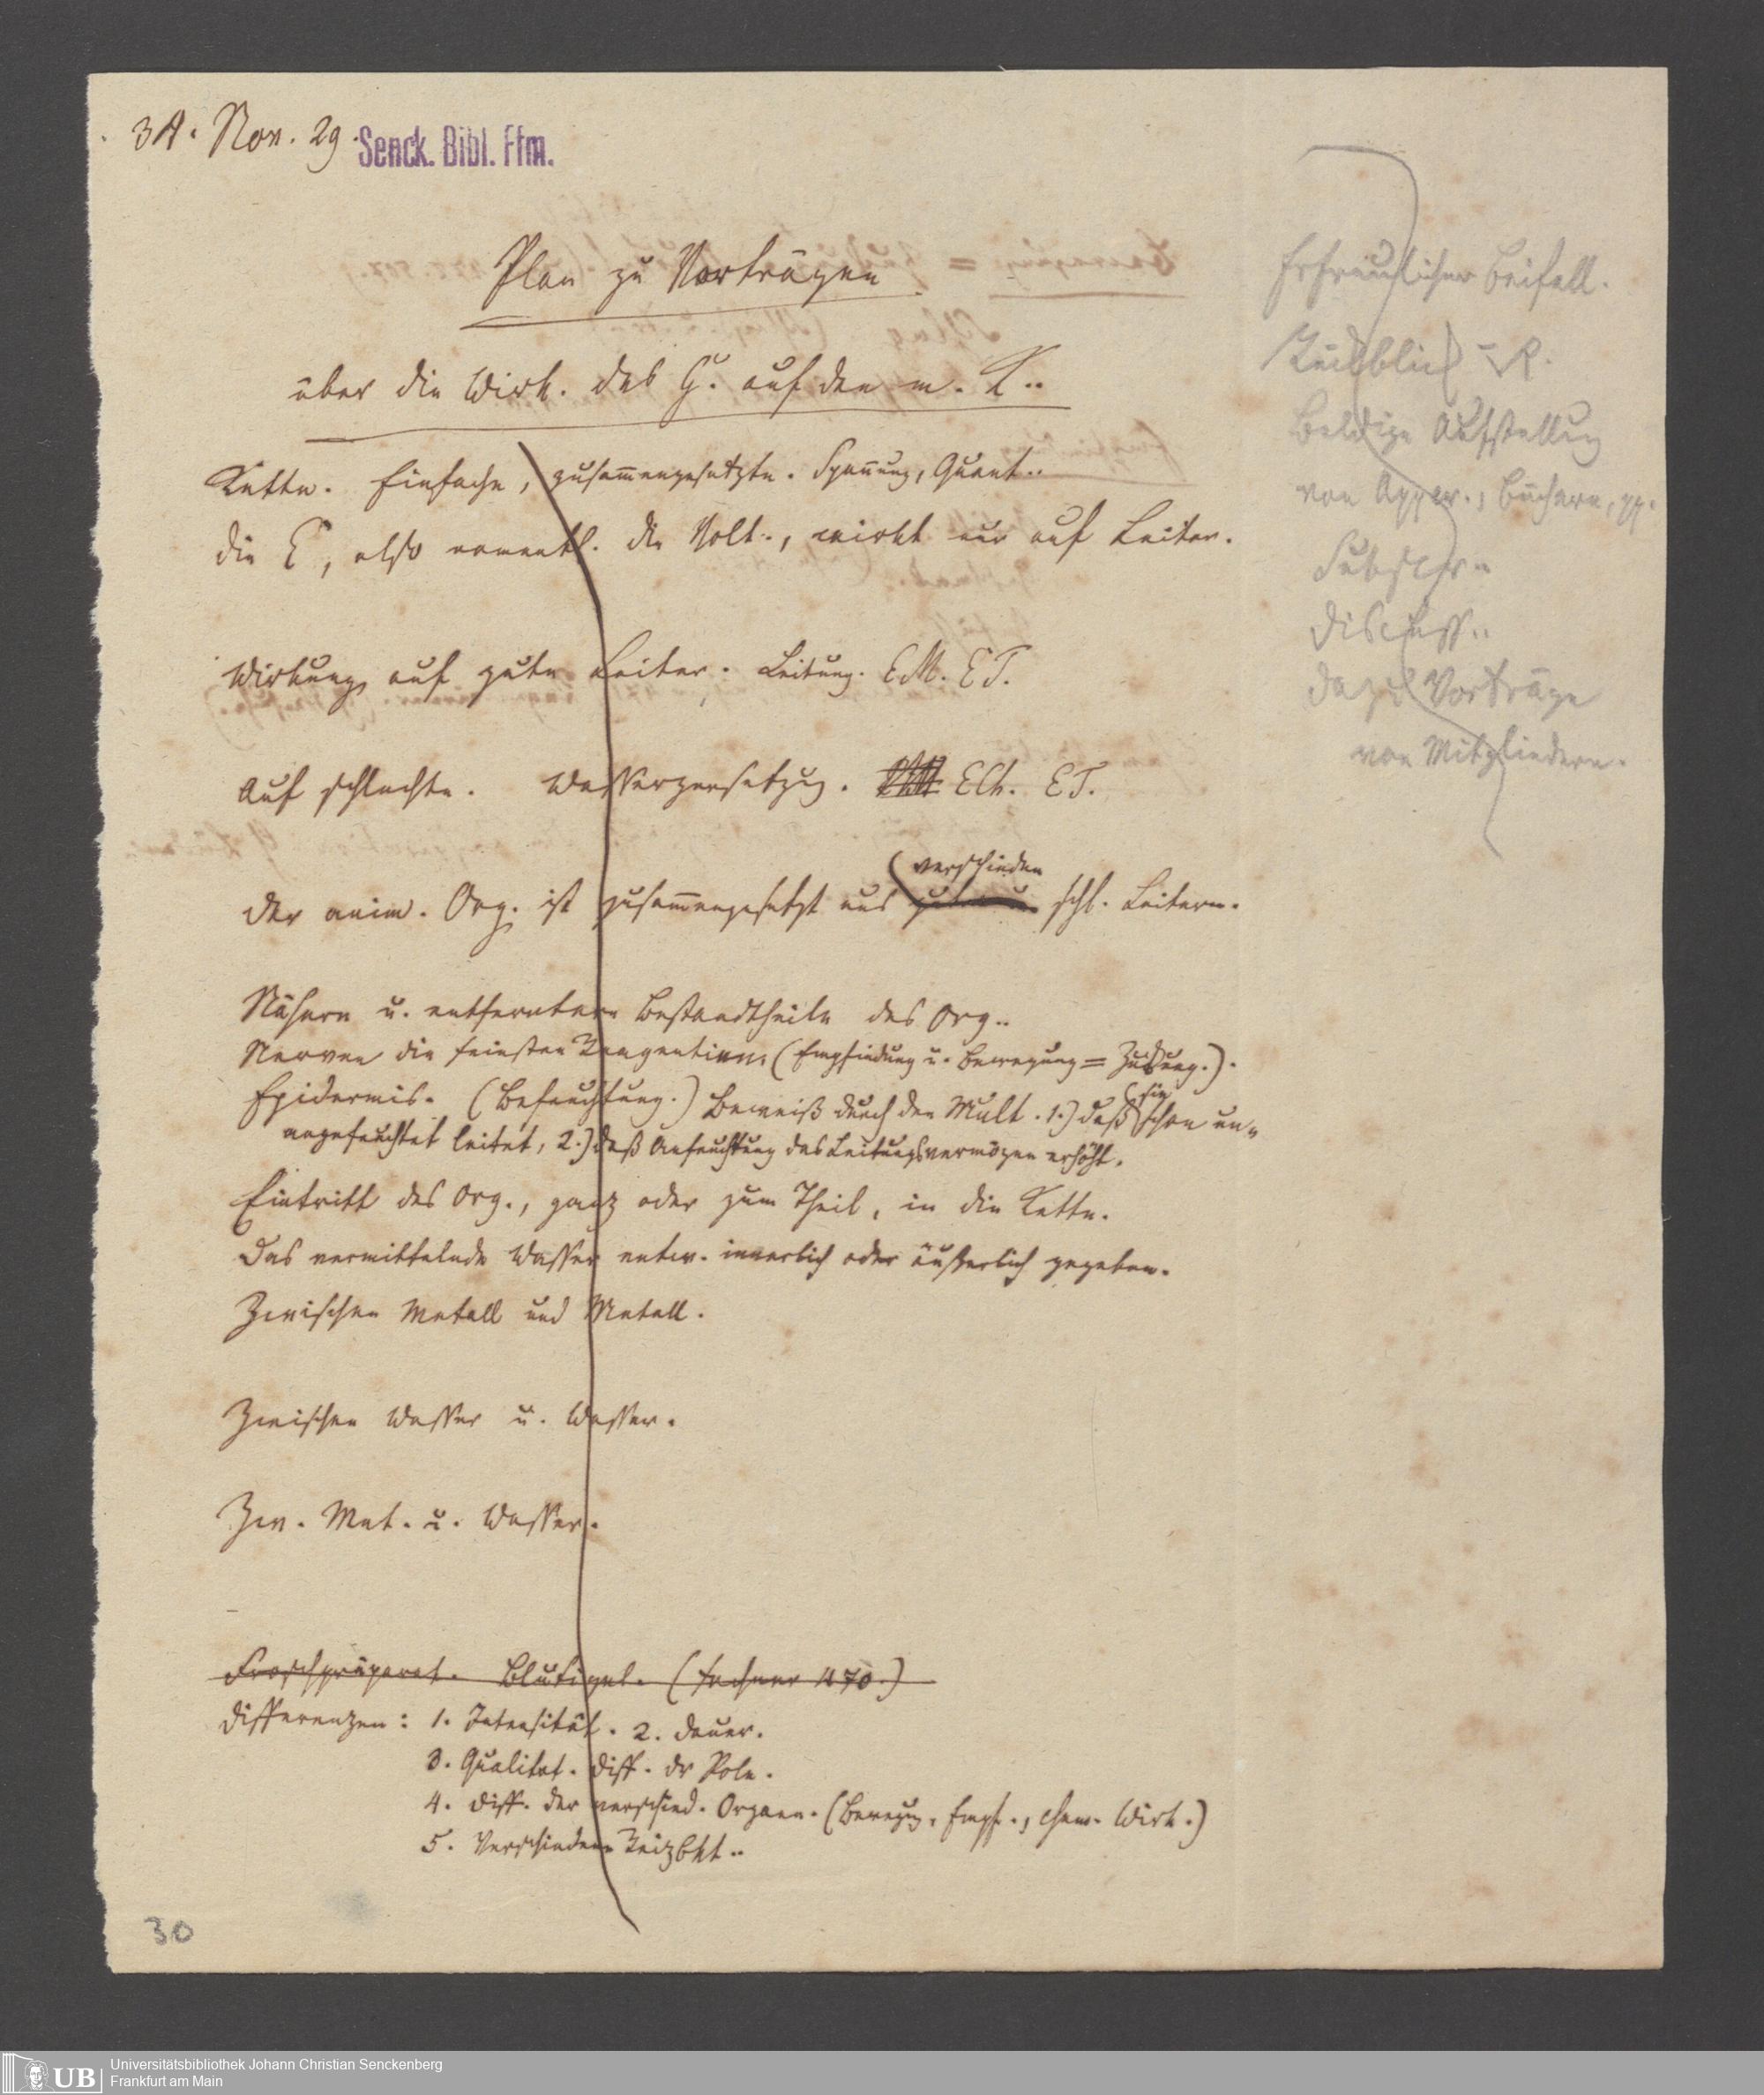 3A. Nov. 29.
Senck. Bibl. Ffm.
Plan zu Vorträgen
über die Wirk. des G. auf den m. K..
Kette. Einfache, zusam̅engesetzte. Span̅ung, Quant..
die E, also namentl. die Volt., wirkt nur auf Leiter.
Wirkung auf gute Leiter. Leitung. EM. ET.
Auf schlechte. Wasserzersetzug. ECh. ET.
verschieden
der anim. Org. ist zusam̅engesetzt aus schl. Leitern.
Nähere u. entferntere Bestandtheile des Org..
Nerven die feinsten Reagentien. (Empfindung u. Bewegung = Zuckung.).
Epidermis. (Befeuchtung.) Beweiß durch den Mult. 1.) daß sie schon un-
angefeuchtet leitet, 2.) daß Anfeuchtung das Leitungsvermögen erhöht.
Eintritt des Org., ganz oder zum Theil, in die Kette.
Das vermittelnde Wasser entw. innerlich oder äußerlich gegeben.
Zwischen Metall und Metall.
Zwischen Wasser u. Wasser.
Zw. Met. u. Wasser.
Froschpräparat. Blutigel. (Fechner 470.)
Differenzen: 1. Intensität. 2. Dauer.
3. Qualitat. Diff. dr Pole.
4. Diff. der verschied. Organe. (Bewegg. Empf., chem. Wirk.)
5. Verschiedene Reizbkt..
30
Erfreulicher Beifall.
Rückblick
Baldige Aufstellung
von Appar., Büchern, pp.
Subscr..
Discuss..
dazu Vorträge
von Mitgliedern.
UB
Universitätsbibliothek Johann Christian Senckenberg
Frankfurt am Main